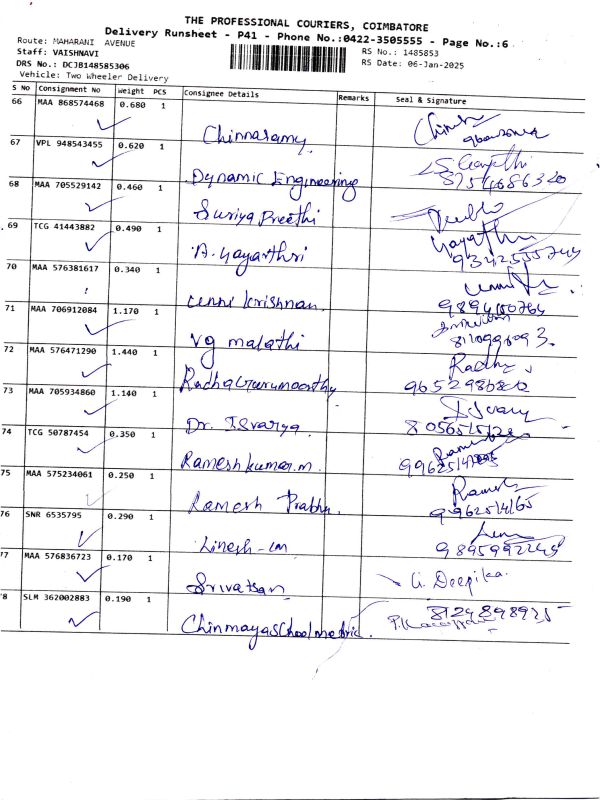 THE PROFESSIONAL COURIERS, COIMBATORE
Delivery Runsheet - P41 - Phone No.:0422-3505555 - Page No.:6
Route: MAHARANI AVENUE
RS No.: 1485853
Staff: VAISHNAVI
RS Date: 06-Jan-2025
DRS No.: DCJB148585306
Vehicle: Two Wheeler Delivery
S No Consignment No Weight PCS Consignee Details Remarks Seal & Signature
66 MAA 868574468 0.680 1
Chinnasamy
67 VPL 948543455 0.620 1
Dynamic Engineering 8754686320
68 MAA 705529142 0.460 1
Suriya Preethi
69 TCG 41443882 0.490 1
A. Gayathri
70 MAA 576381617 0.340 1
Unni Krishnan
71 MAA 706912084 1.170 1
Vg malathi
72 MAA 576471290 1.440 1
Radha Gurumoorthy
73 MAA 705934860 1.140 1
Dr. Isvarya
74 TCG 50787454 0.350 1
Rameshkumar.m
75 MAA 575234061 0.250 1
Ramesh Prabhu. 9962514165
76 SNR 6535795 0.290 1
77 MAA 576836723 0.170 1
Srivatsan G. Deepika.
78 SLM 362002883 0.190 1
8124898925
Chinmayaschool matric.